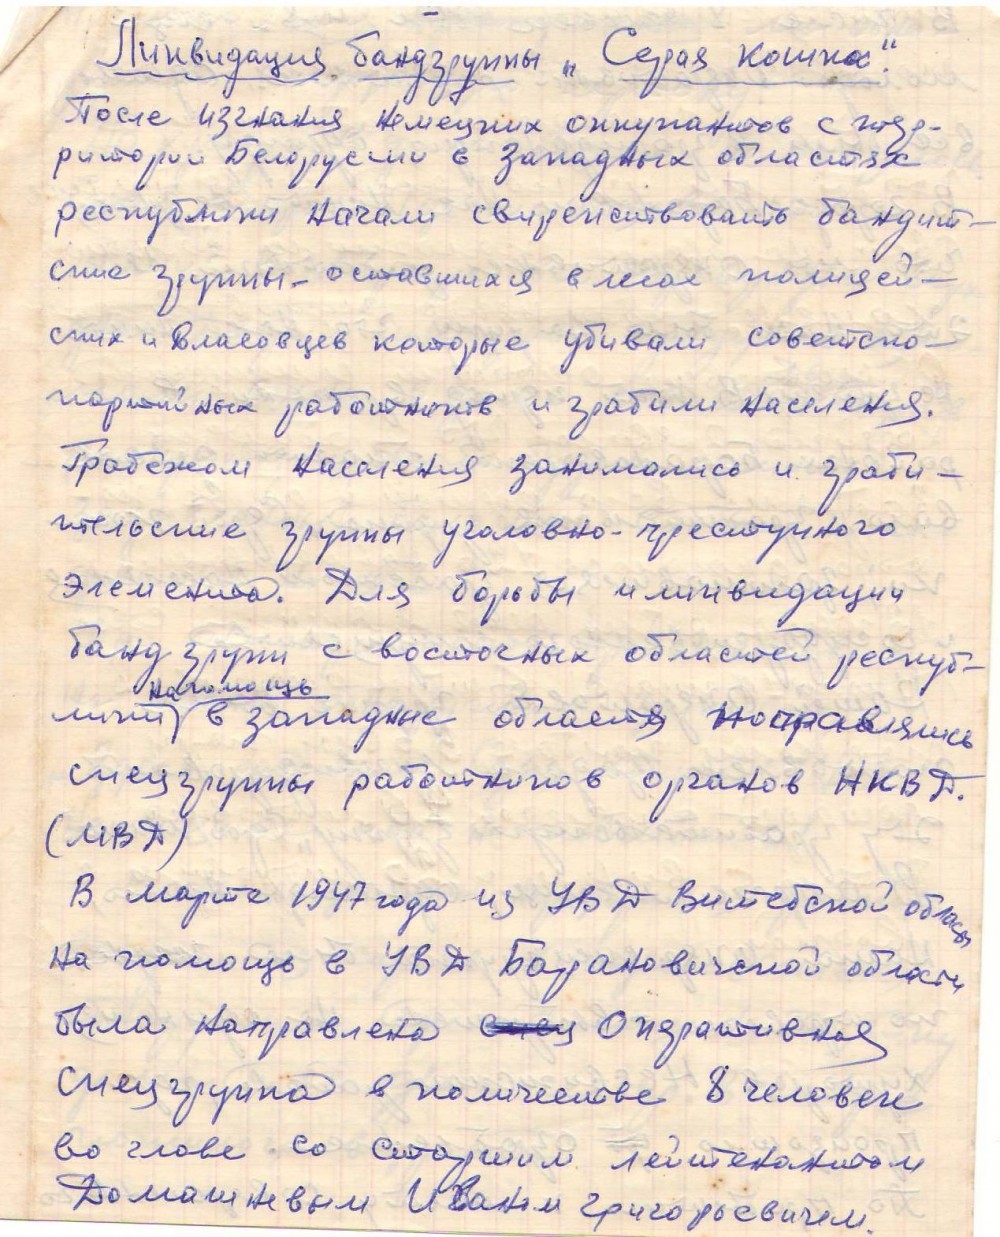 Ликвидация бандгруппы „Серая кошка".
После изгнания немецких оккупантов с тер-
ритории Белорусии в Западных областях
республики начали свирепствовать бандит-
ские группы - оставшихся в лесах полицей-
ских и Власовцев которые убивали советско-
партийных работников и грабили населения.
Грабежом населения занимались и граби-
тельские группы уголовно-преступного
элемента. Для борьбы и ликвидации
банд групп с восточных областей респуб-
на помощь
лики в западные области направлялись
спецгруппы работников органов НКВД.
(МВД)
В марте 1947 года из УВД Витебской области
на помощь в УВД Барановичской области
была направлена спец Оперативная
спецгруппа в количестве 8 человек
во главе со старшим лейтенантом
Домашневым Иваном Григорьевичем.